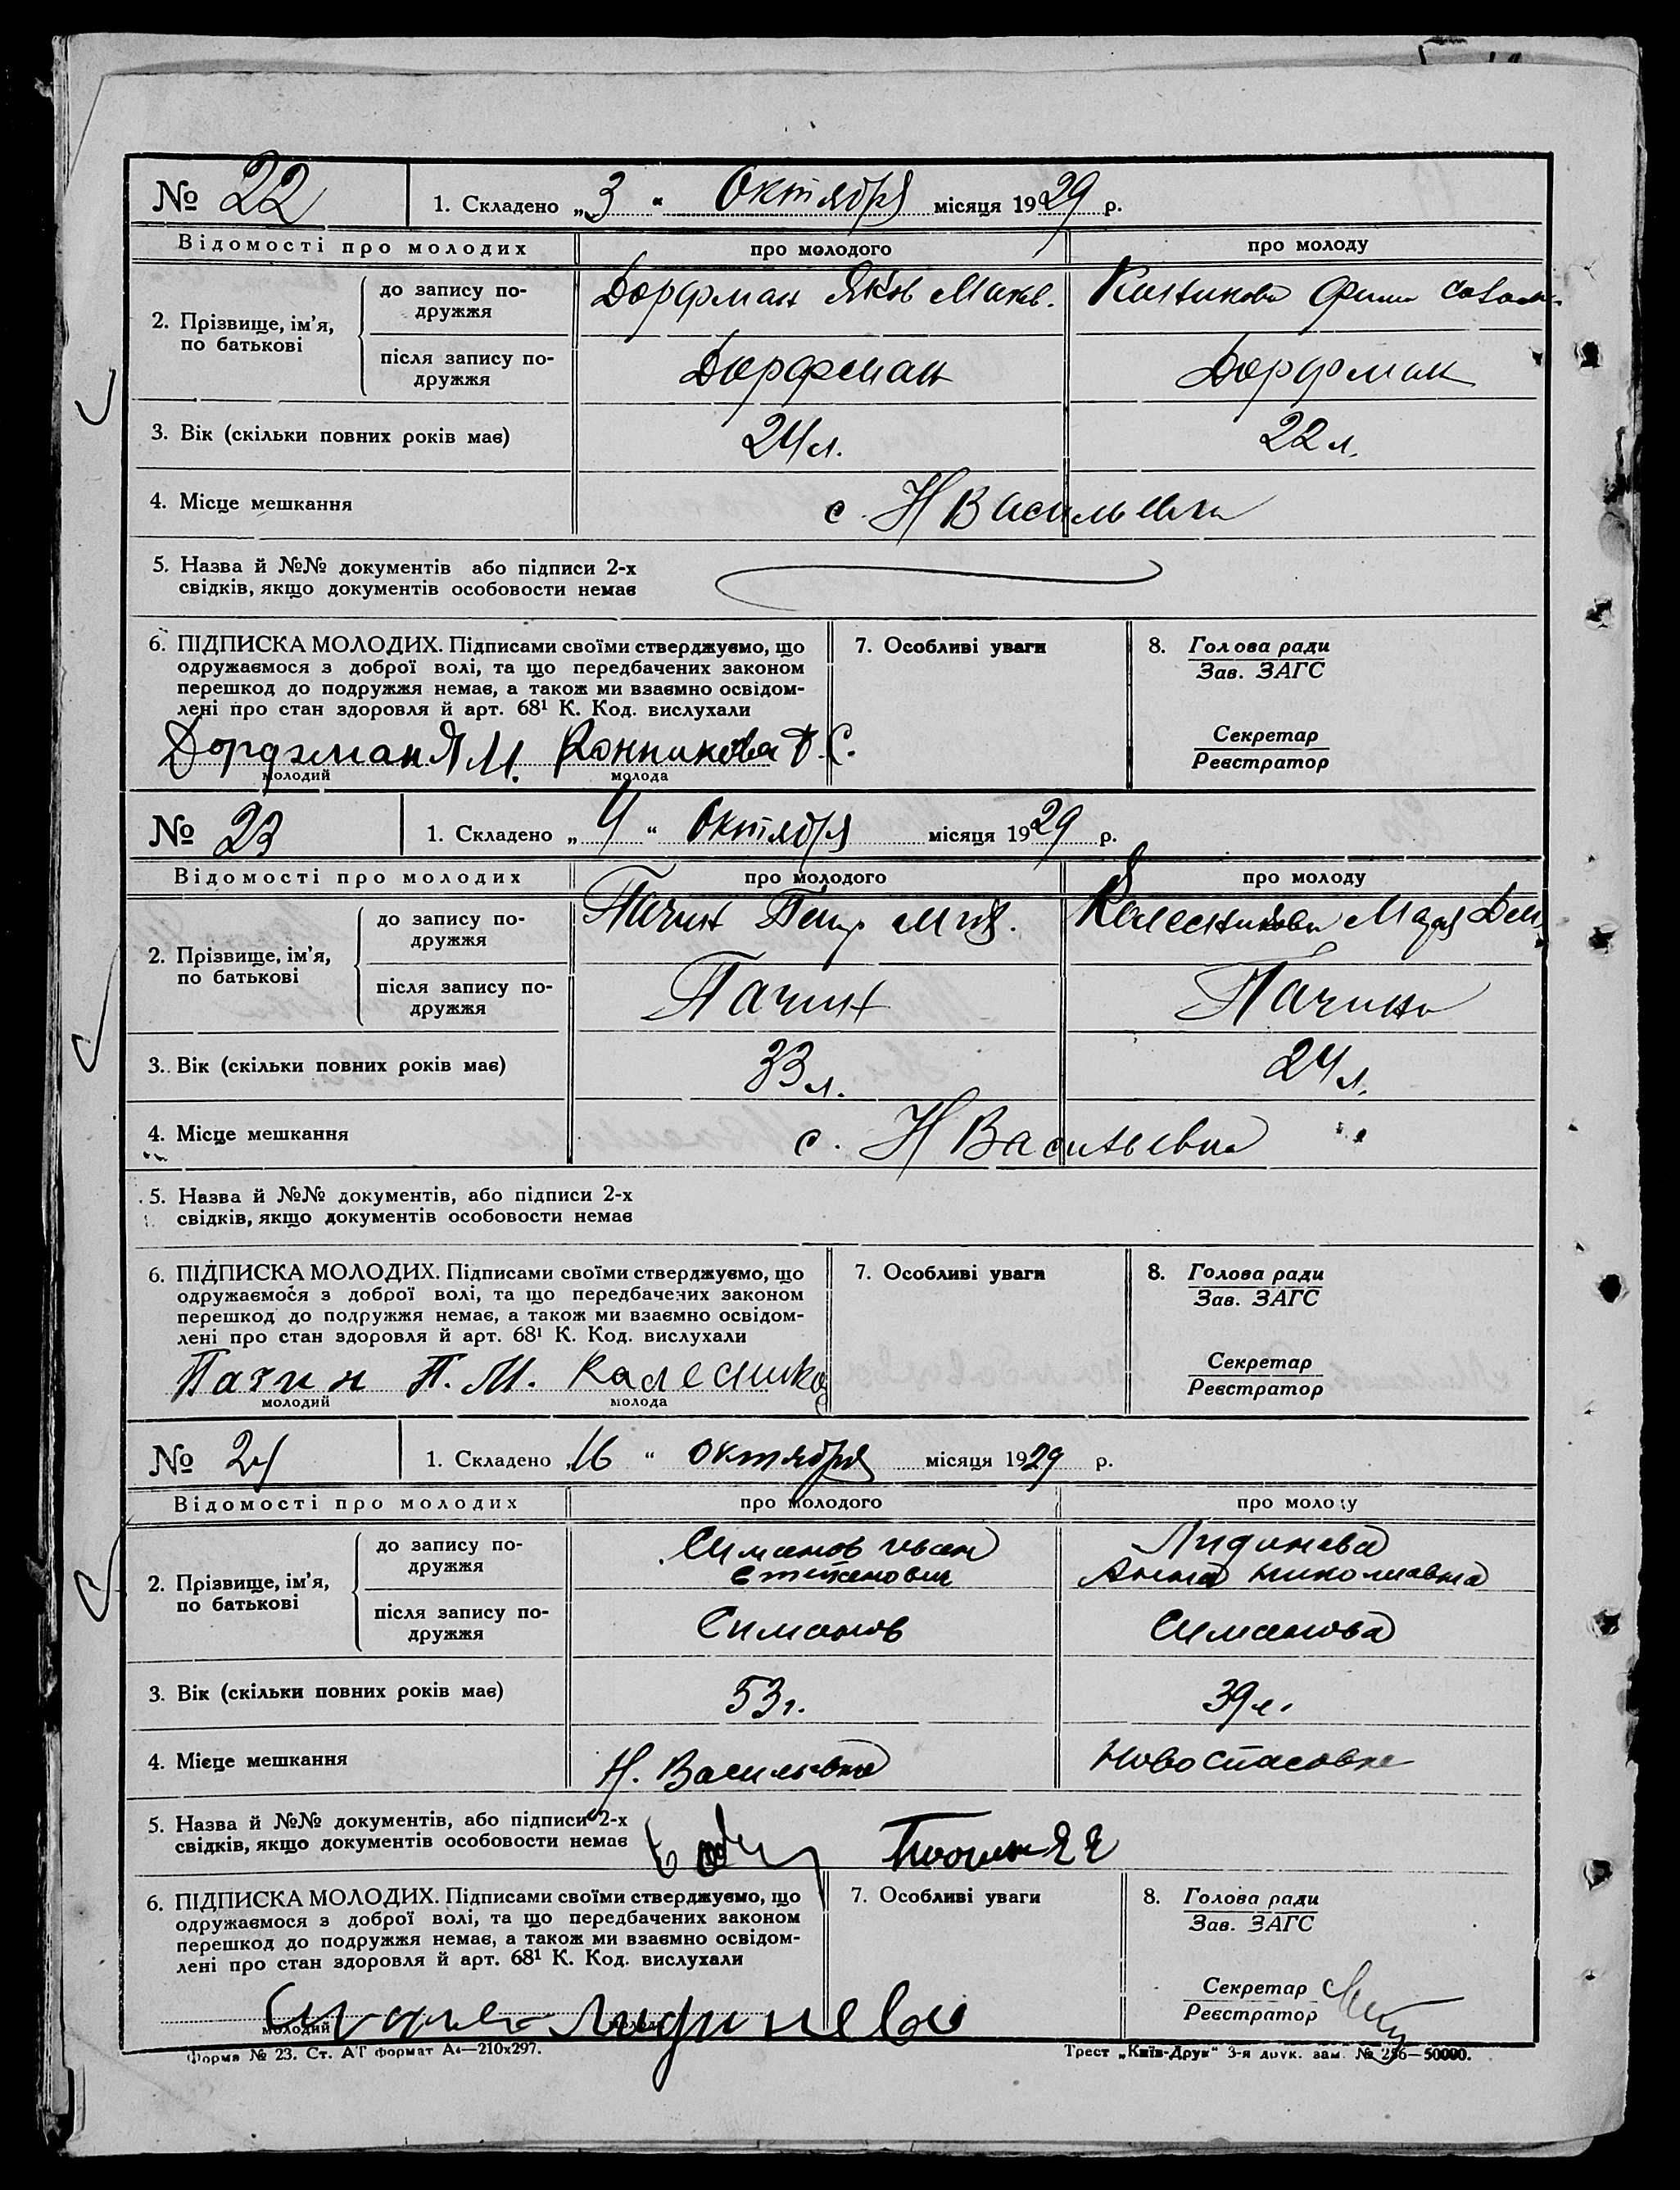 № 22
1. Складено „3“ Октября місяця 1929 р.
Відомості про молодих
про молодого
про молоду
2. Прізвище, ім’я, по батькові
до запису по-
дружжя
Дорфман Яков
після запису по-
дружжя
Дорфман
Дорфман
3. Вік (скільки повних років має)
24 л.
22 л.
4. Місце мешкання
с. Н Васильевка
5. Назва й №№ документів або підписи 2-х
свідків, якщо документів особовости немає
6. ПІДПИСКА МОЛОДИХ. Підписами своїми стверджуємо, що
одружаємося з доброї волі, та що передбачених законом
перешкод до подружжя немає, а також ми взаємно освідом-
лені про стан здоровля й арт. 68¹ К. Код. вислухали
Дордзман Я М. Конникова Ф. С.
молодий
молода
7. Особливі уваги
8. Голова ради
Зав. ЗАГС
Секретар
Реєстратор
№ 23
1. Складено „4“ Октября місяця 1929 р.
Відомості про молодих
про молодого
про молоду
2. Прізвище, ім’я, по батькові
до запису по-
дружжя
Пачин Петр
Колесникова
після запису по-
дружжя
Пачин
Пачина
3. Вік (скільки повних років має)
33 л.
24 л.
4. Місце мешкання
с. Н Васильевка
5. Назва й №№ документів, або підписи 2-х
свідків, якщо документів особовости немає
6. ПІДПИСКА МОЛОДИХ. Підписами своїми стверджуємо, що
одружаємося з доброї волі, та що передбачених законом
перешкод до подружжя немає, а також ми взаємно освідом-
лені про стан здоровля й арт. 68¹ К. Код. вислухали
Пазин П. М. Калесников
молодий
молода
7. Особливі уваги
8. Голова ради
Зав. ЗАГС
Секретар
Реєстратор
№ 24
1. Складено „16“ октября місяця 1929 р.
Відомості про молодих
про молодого
про молоду
2. Прізвище, ім’я, по батькові
до запису по-
дружжя
Симанов иван
степанович
Лидинева
Анна николиавна
після запису по-
дружжя
Симанов
Симанова
3. Вік (скільки повних років має)
53 г.
39 л.
4. Місце мешкання
Н. Васильевка
Новоспасовка
5. Назва й №№ документів, або підписи 2-х
свідків, якщо документів особовости немає
6. ПІДПИСКА МОЛОДИХ. Підписами своїми стверджуємо, що
одружаємося з доброї волі, та що передбачених законом
перешкод до подружжя немає, а також ми взаємно освідом-
лені про стан здоровля й арт. 68¹ К. Код. вислухали
Лидинева
молодий
молода
7. Особливі уваги
8. Голова ради
Зав. ЗАГС
Секретар
Реєстратор
Форма № 23. Ст. АТ формат А₄—210х297.
Трест „Київ-Друк“ 3-я друк. зам. № 256—50000.